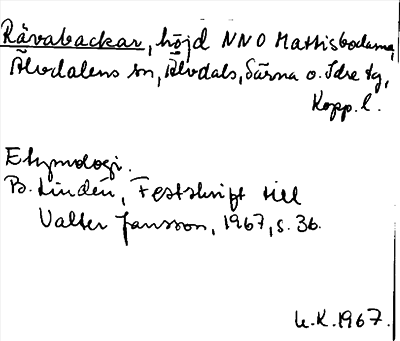 Rävabackar, höjd NNO Mattisbodarna,
Älvdalens sn, Älvdals, Särna o. Idre tg,
Kopp. l.
Etymologi.
B. Lindén, Festskrift till
Valter Jansson, 1967, s. 36.
U.K. 1967.